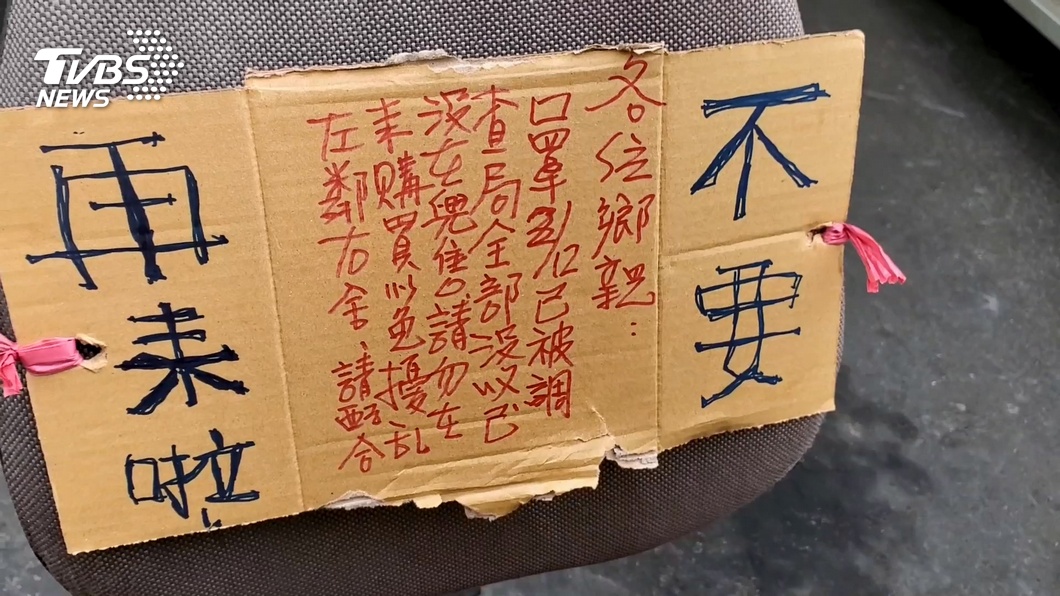 TVBS
NEWS
不要
各位鄉親：
口罩2/12已被調
查局全部沒収已
沒在兜售請勿在
来購買以免擾乱
左鄰右舍、請配合
再来啦